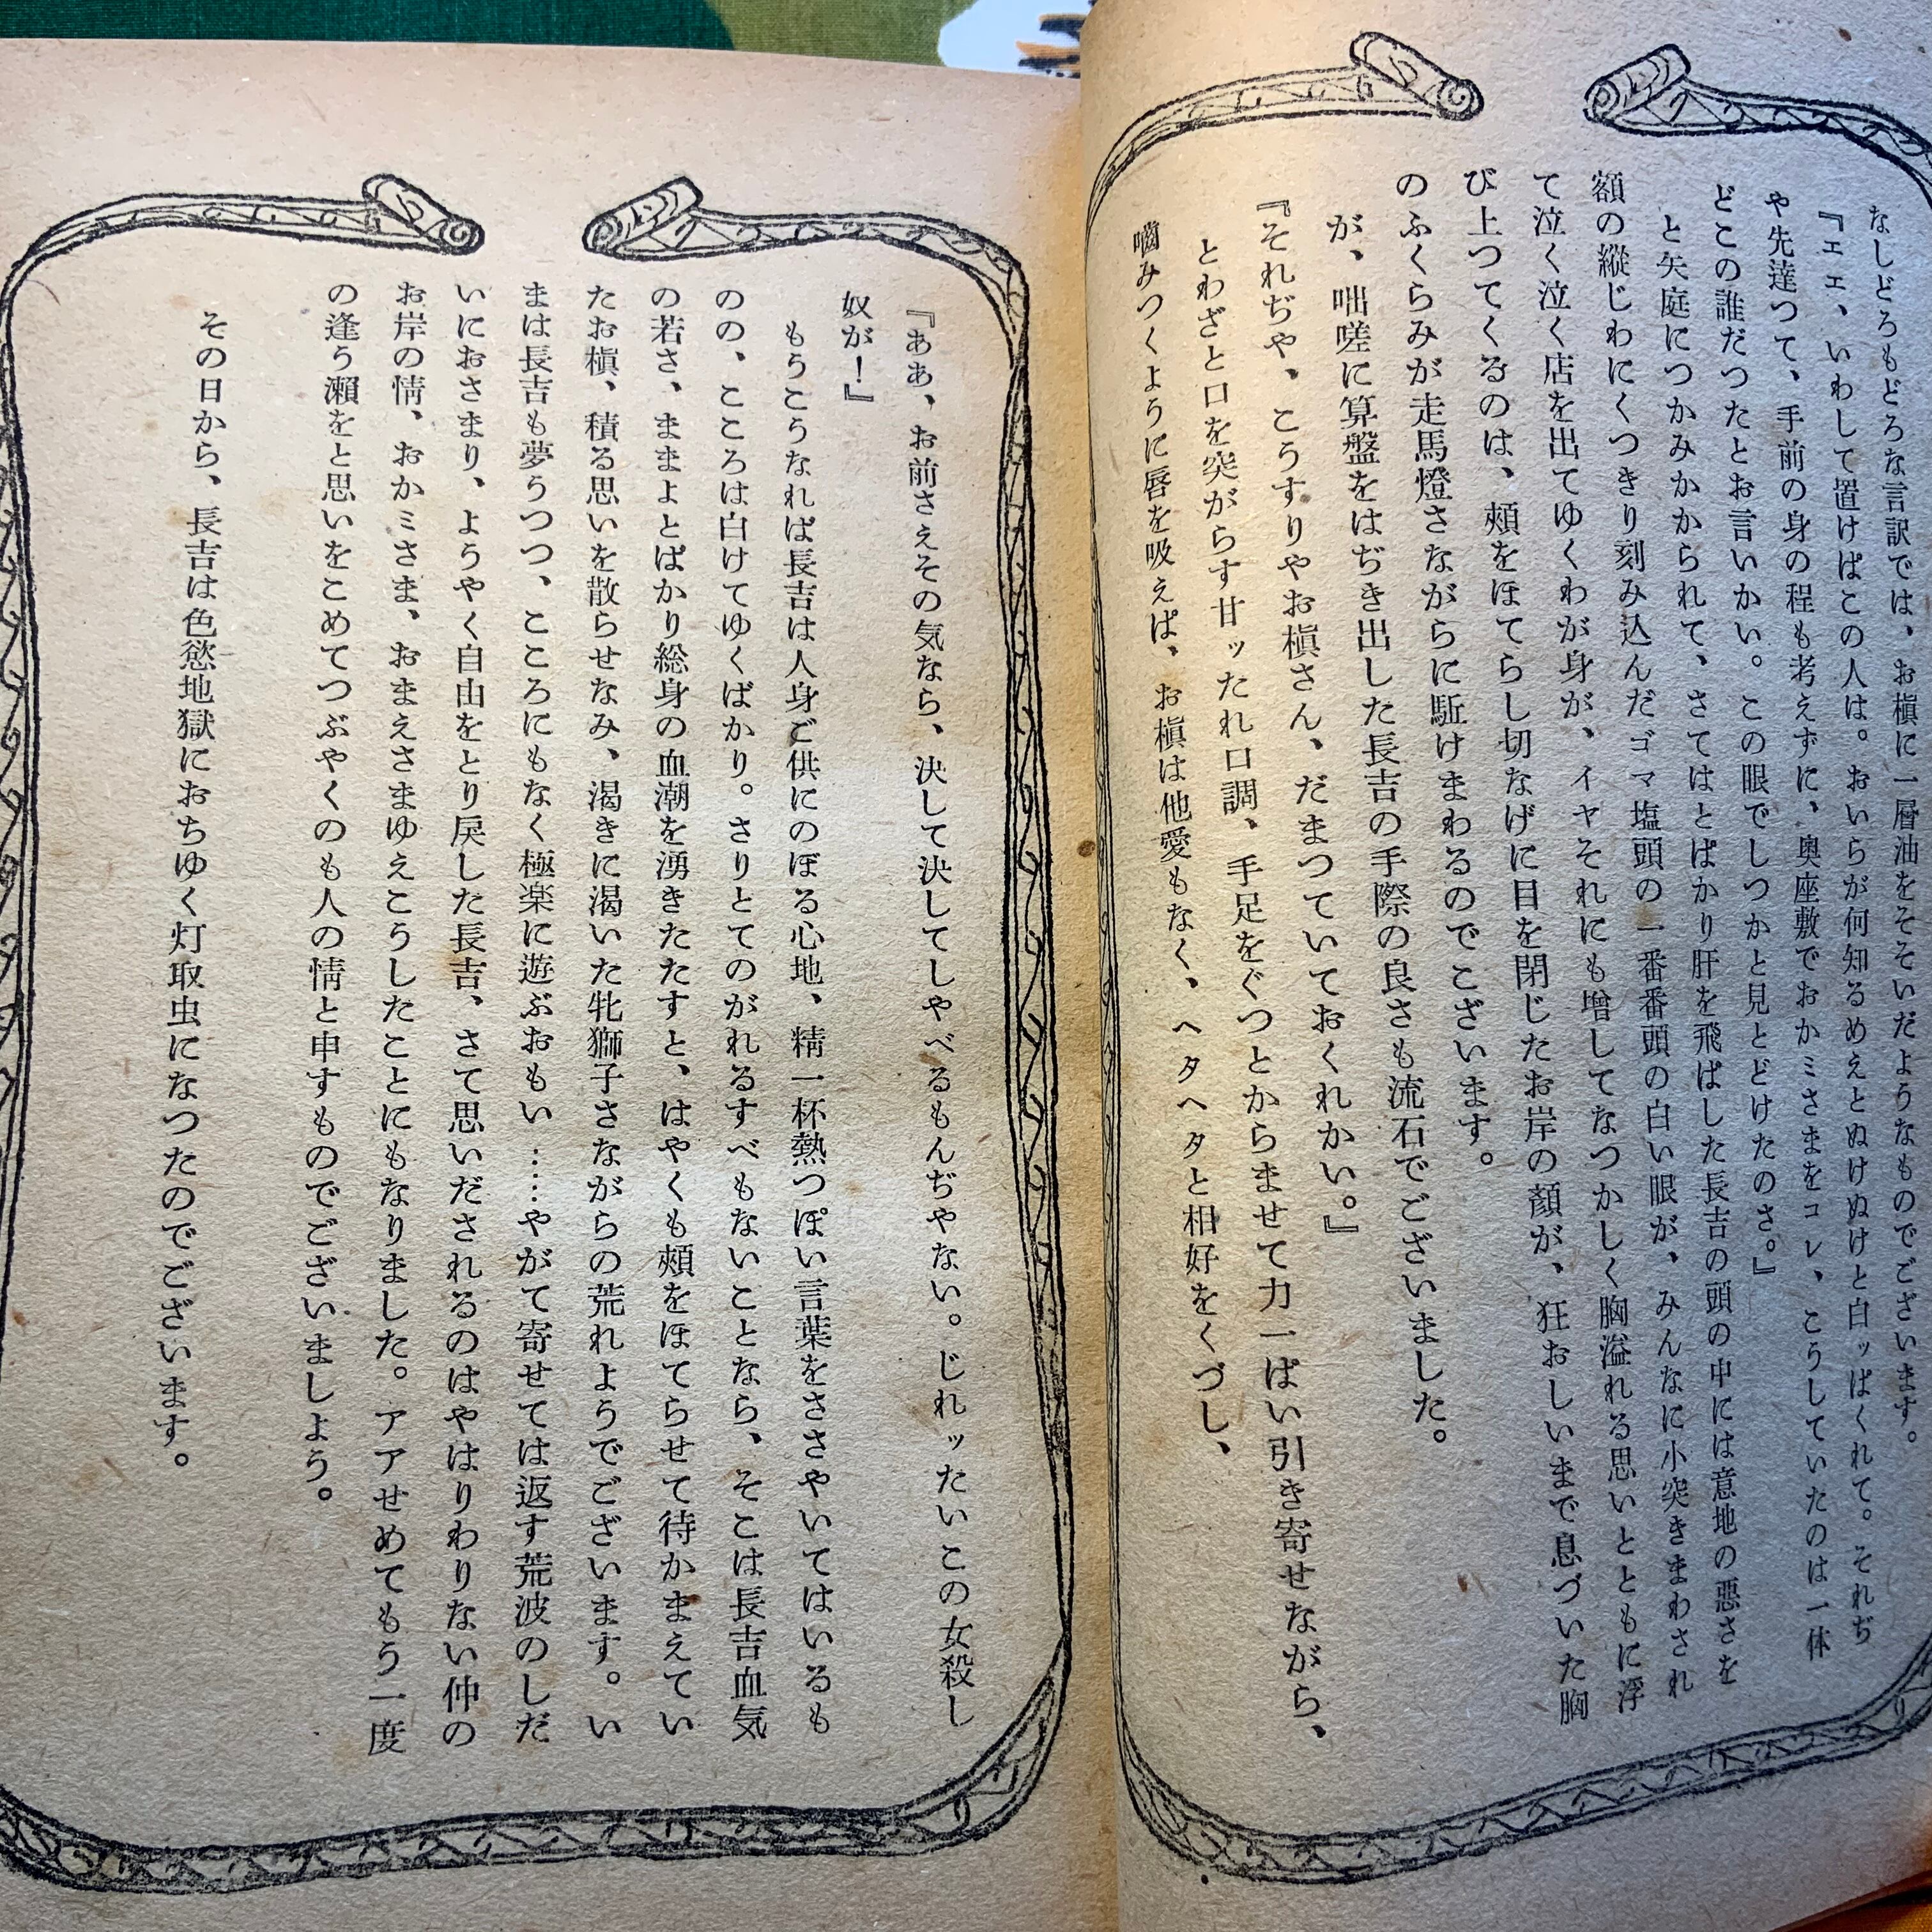 なしどろもどろな言訳では、お槇に一層油をそそいだようなものでございます。
『エエ、いわして置けばこの人は。おいらが何知るめえとぬけぬけと白ッぱくれて。それぢ
や先達つて、手前の身の程も考えずに、奥座敷でおかミさまをコレ、こうしていたのは一体
どこの誰だつたとお言いかい。この眼でしつかと見とどけたのさ。』
と矢庭につかみかかられて、さてはとばかり肝を飛ばした長吉の頭の中には意地の悪さを
額の縦じわにくつきり刻み込んだゴマ塩頭の一番番頭の白い眼が、みんなに小突きまわされ
て泣く泣く店を出てゆくわが身が、イヤそれにも増してなつかしく胸溢れる思いとともに浮
び上つてくるのは、頰をほてらし切なげに目を閉じたお岸の顔が、狂おしいまで息づいた胸
のふくらみが走馬燈さながらに駈けまわるのでございます。
が、咄嗟に算盤をはぢき出した長吉の手際の良さも流石でございました。
『それぢや、こうすりやお槇さん、だまつていておくれかい。』
とわざと口を突がらす甘ッたれ口調、手足をぐつとからませて力一ぱい引き寄せながら、
嚙みつくように唇を吸えば、お槇は他愛もなく、ヘタヘタと相好をくづし、
『ああ、お前さえその気なら、決して決してしやべるもんぢやない。じれッたいこの女殺し
奴が！』
もうこうなれば長吉は人身ご供にのぼる心地、精一杯熱つぽい言葉をささやいてはいるも
のの、こころは白けてゆくばかり。さりとてのがれるすべもないことなら、そこは長吉血気
の若さ、ままよとばかり総身の血潮を湧きたたすと、はやくも頰をほてらせて待かまえてい
たお槇、積る思いを散らせなみ、渇きに渇いた牝獅子さながらの荒れようでございます。い
まは長吉も夢うつつ、こころにもなく極楽に遊ぶおもい……やがて寄せては返す荒波のしだ
いにおさまり、ようやく自由をとり戻した長吉、さて思いだされるのはやはりわりない仲の
お岸の情、おかミさま、おまえさまゆえこうしたことにもなりました。アアせめてもう一度
の逢う瀬をと思いをこめてつぶやくのも人の情と申すものでございましよう。
その日から、長吉は色慾地獄におちゆく灯取虫になつたのでございます。